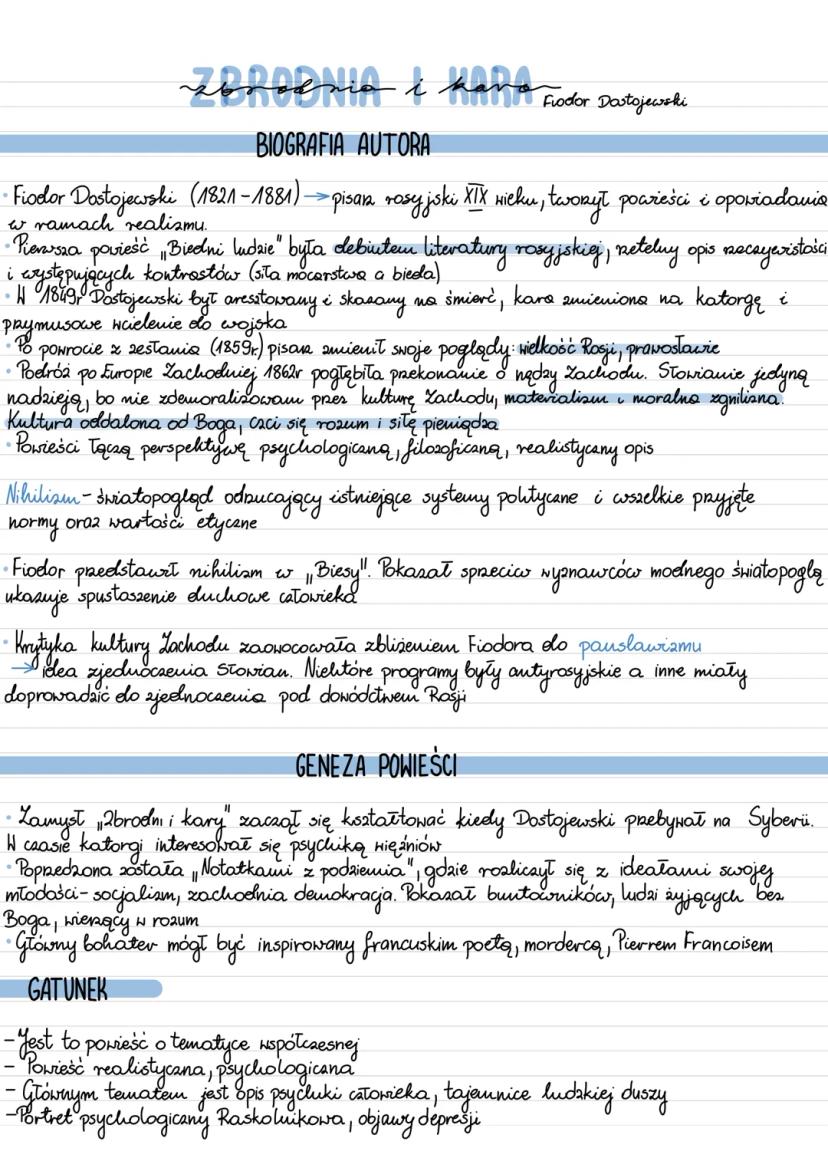 ZBRODNIA I KARA
zbrodnia i kara
Fiodor Dostojewski
BIOGRAFIA AUTORA
• Fiodor Dostojewski (1821-1881) → pisarz rosyjski XIX wieku, tworzył powieści i opowiadania
w ramach realizmu.
• Pierwsza powieść „Biedni ludzie" była debiutem literatury rosyjskiej, rzetelny opis rzeczywistości
i występujących kontrastów (siła mocarstwa a bieda)
• W 1849r Dostojewski był aresztowany i skazany na śmierć, kara zmieniona na katorgę i
przymusowe wcielenie do wojska
• Po powrocie z zesłania (1859r.) pisarz zmienił swoje poglądy: wielkość Rosji, prawosławie
• Podróż po Europie Zachodniej 1862r pogłębiła przekonanie o nędzy Zachodu. Słowianie jedyną
nadzieją, bo nie zdemoralizowani przez kulturę Zachodu, materializm i moralna zgnilizna.
Kultura oddalona od Boga, czci się rozum i siłę pieniądza
• Powieści łączą perspektywę psychologiczną, filozoficzną, realistyczny opis
Nihilizm - światopogląd odrzucający istniejące systemy polityczne i wszelkie przyjęte
normy oraz wartości etyczne
• Fiodor przedstawił nihilizm w „Biesy". Pokazał sprzeciw wyznawców modnego światopoglą
ukazuje spustoszenie duchowe człowieka
• Krytyka kultury Zachodu zaowocowała zbliżeniem Fiodora do panslawizmu
→ idea zjednoczenia Słowian. Niektóre programy były antyrosyjskie a inne miały
doprowadzić do zjednoczenia pod dowództwem Rosji
GENEZA POWIEŚCI
• Zamysł „Zbrodni i kary" zaczął się kształtować kiedy Dostojewski przebywał na Syberii.
W czasie katorgi interesował się psychiką więźniów
• Poprzedzona została „Notatkami z podziemia", gdzie rozliczył się z ideałami swojej
młodości - socjalizm, zachodnia demokracja. Pokazał buntowników, ludzi żyjących bez
Boga, wierzący w rozum
• Główny bohater mógł być inspirowany francuskim poetą, mordercą, Pierrem Francoisem
GATUNEK
- Jest to powieść o tematyce współczesnej
- Powieść realistyczna, psychologiczna
- Głównym tematem jest opis psychiki człowieka, tajemnice ludzkiej duszy
- Portret psychologiczny Raskolnikowa, objawy depresji